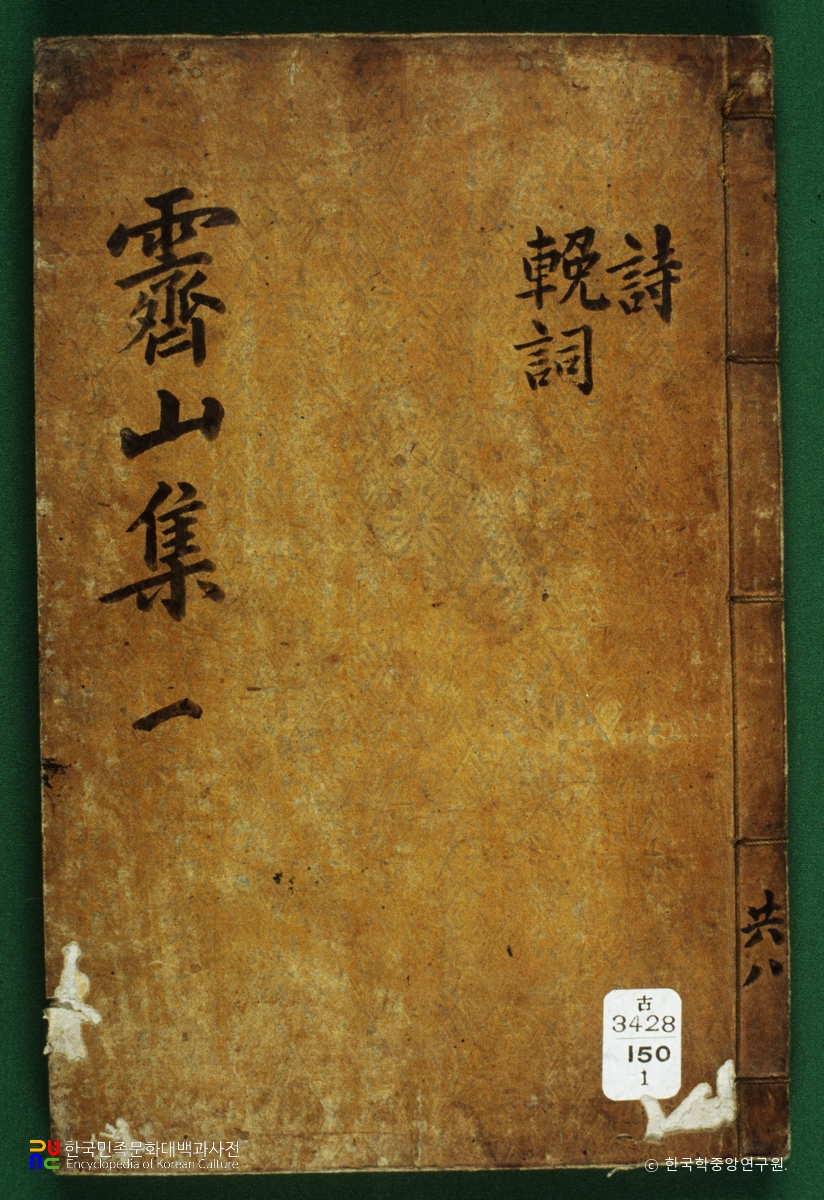 詩
輓詞
霽山集 一
共八
古
3428
150
1
한국민족문화대백과사전
Encyclopedia of Korean Culture
© 한국학중앙연구원.